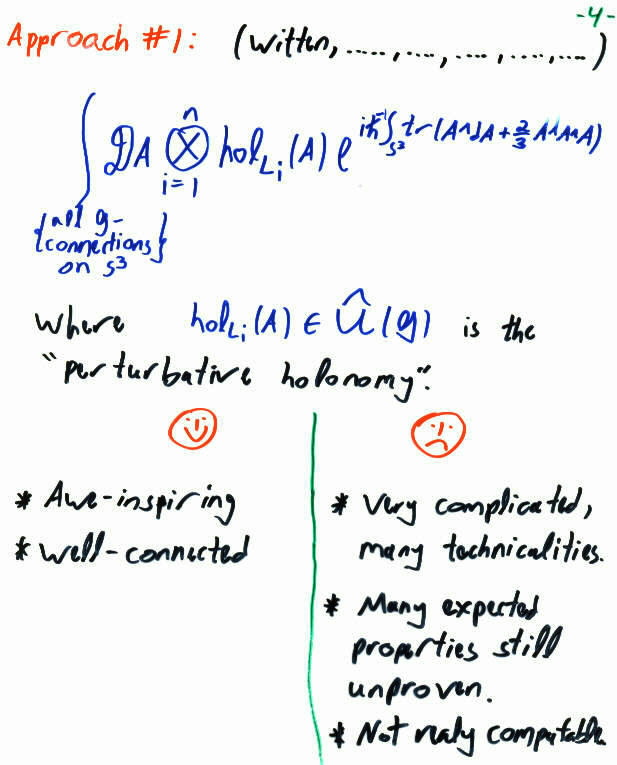 -4-
Approach #1: (Witten, ....., ...., ...., ...., ....)
∫ DA ⊗ hol_{L_i}(A) e^{iħ^{-1}∫_{S^3} tr(A∧dA + 2/3 A∧A∧A)}
n
i=1
{all g-
connections
on S^3}
where hol_{L_i}(A) ∈ Û(g) is the
"perturbative holonomy".
* Awe-inspiring
* Well-connected
* Very complicated,
many technicalities.
* Many expected
properties still
unproven.
* Not realy computable